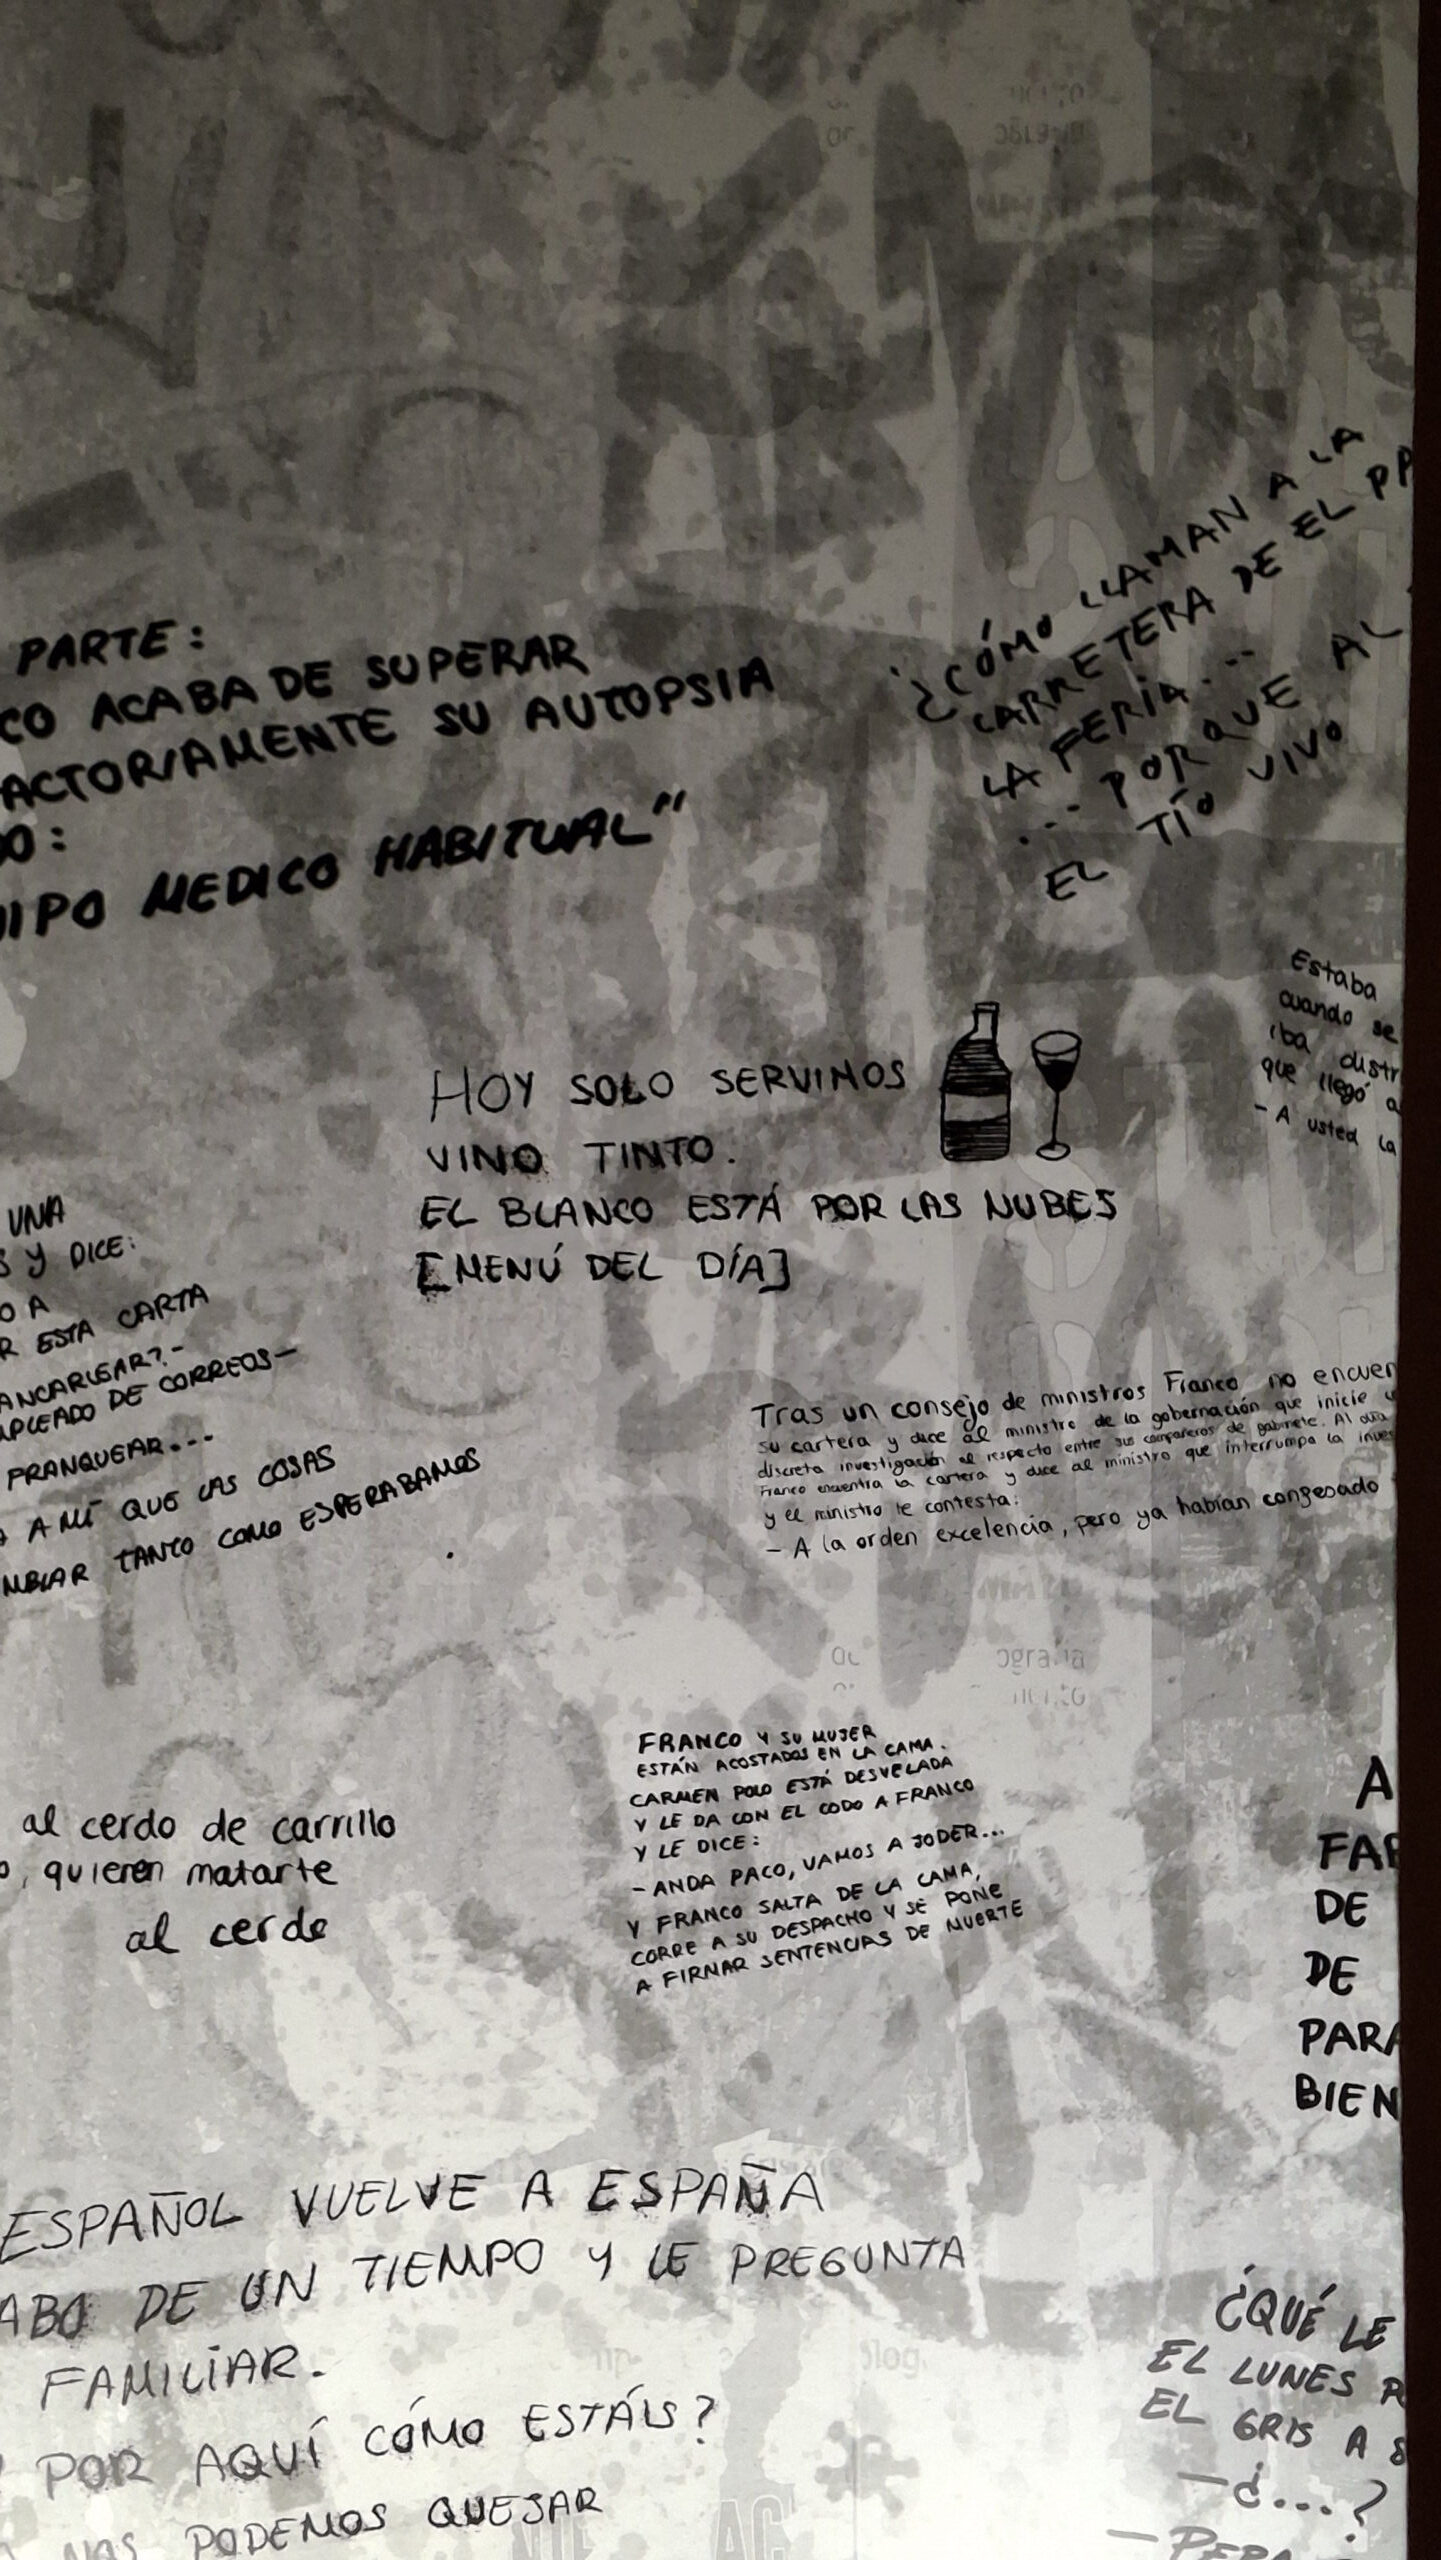 PARTE:
CO ACABA DE SUPERAR
ACTORIAMENTE SU AUTOPSIA
DO:
UIPO MEDICO HABITUAL"
¿CÓMO LLAMAN A LA
CARRETERA DE EL PA
LA FERIA...
... PORQUE AL
EL TÍO VIVO
Estaba
cuando se
iba distr
que llegó a
- A usted la
HOY SOLO SERVIMOS
VINO TINTO.
EL BLANCO ESTÁ POR LAS NUBES
[MENÚ DEL DÍA]
UNA
S Y DICE:
O A
R ESTA CARTA
ANCARLEAR?-
MPLEADO DE CORREOS-
FRANQUEAR...
A MÍ QUE LAS COSAS
MBIAR TANTO COMO ESPERABAMOS
Tras un consejo de ministros Franco no encuen
su cartera y dice al ministro de la gobernación que inicie
discreta investigación al respecto entre sus compañeros de gabinete. Al día
Franco encuentra la cartera y dice al ministro que interrumpa la inves
y el ministro le contesta:
- A la orden excelencia, pero ya habían congesado
FRANCO Y SU MUJER
ESTÁN ACOSTADOS EN LA CAMA.
CARMEN POLO ESTÁ DESVELADA
Y LE DA CON EL CODO A FRANCO
Y LE DICE:
- ANDA PACO, VAMOS A JODER...
Y FRANCO SALTA DE LA CAMA,
CORRE A SU DESPACHO Y SE PONE
A FIRMAR SENTENCIAS DE MUERTE
al cerdo de carrillo
o, quieren matarte
al cerdo
A
FAR
DE
DE
PARA
BIEN
ESPAÑOL VUELVE A ESPAÑA
ABO DE UN TIEMPO Y LE PREGUNTA
FAMILIAR.
POR AQUÍ CÓMO ESTÁIS?
NOS PODEMOS QUEJAR
¿QUÉ LE
EL LUNES P
EL GRIS A S
-¿...?